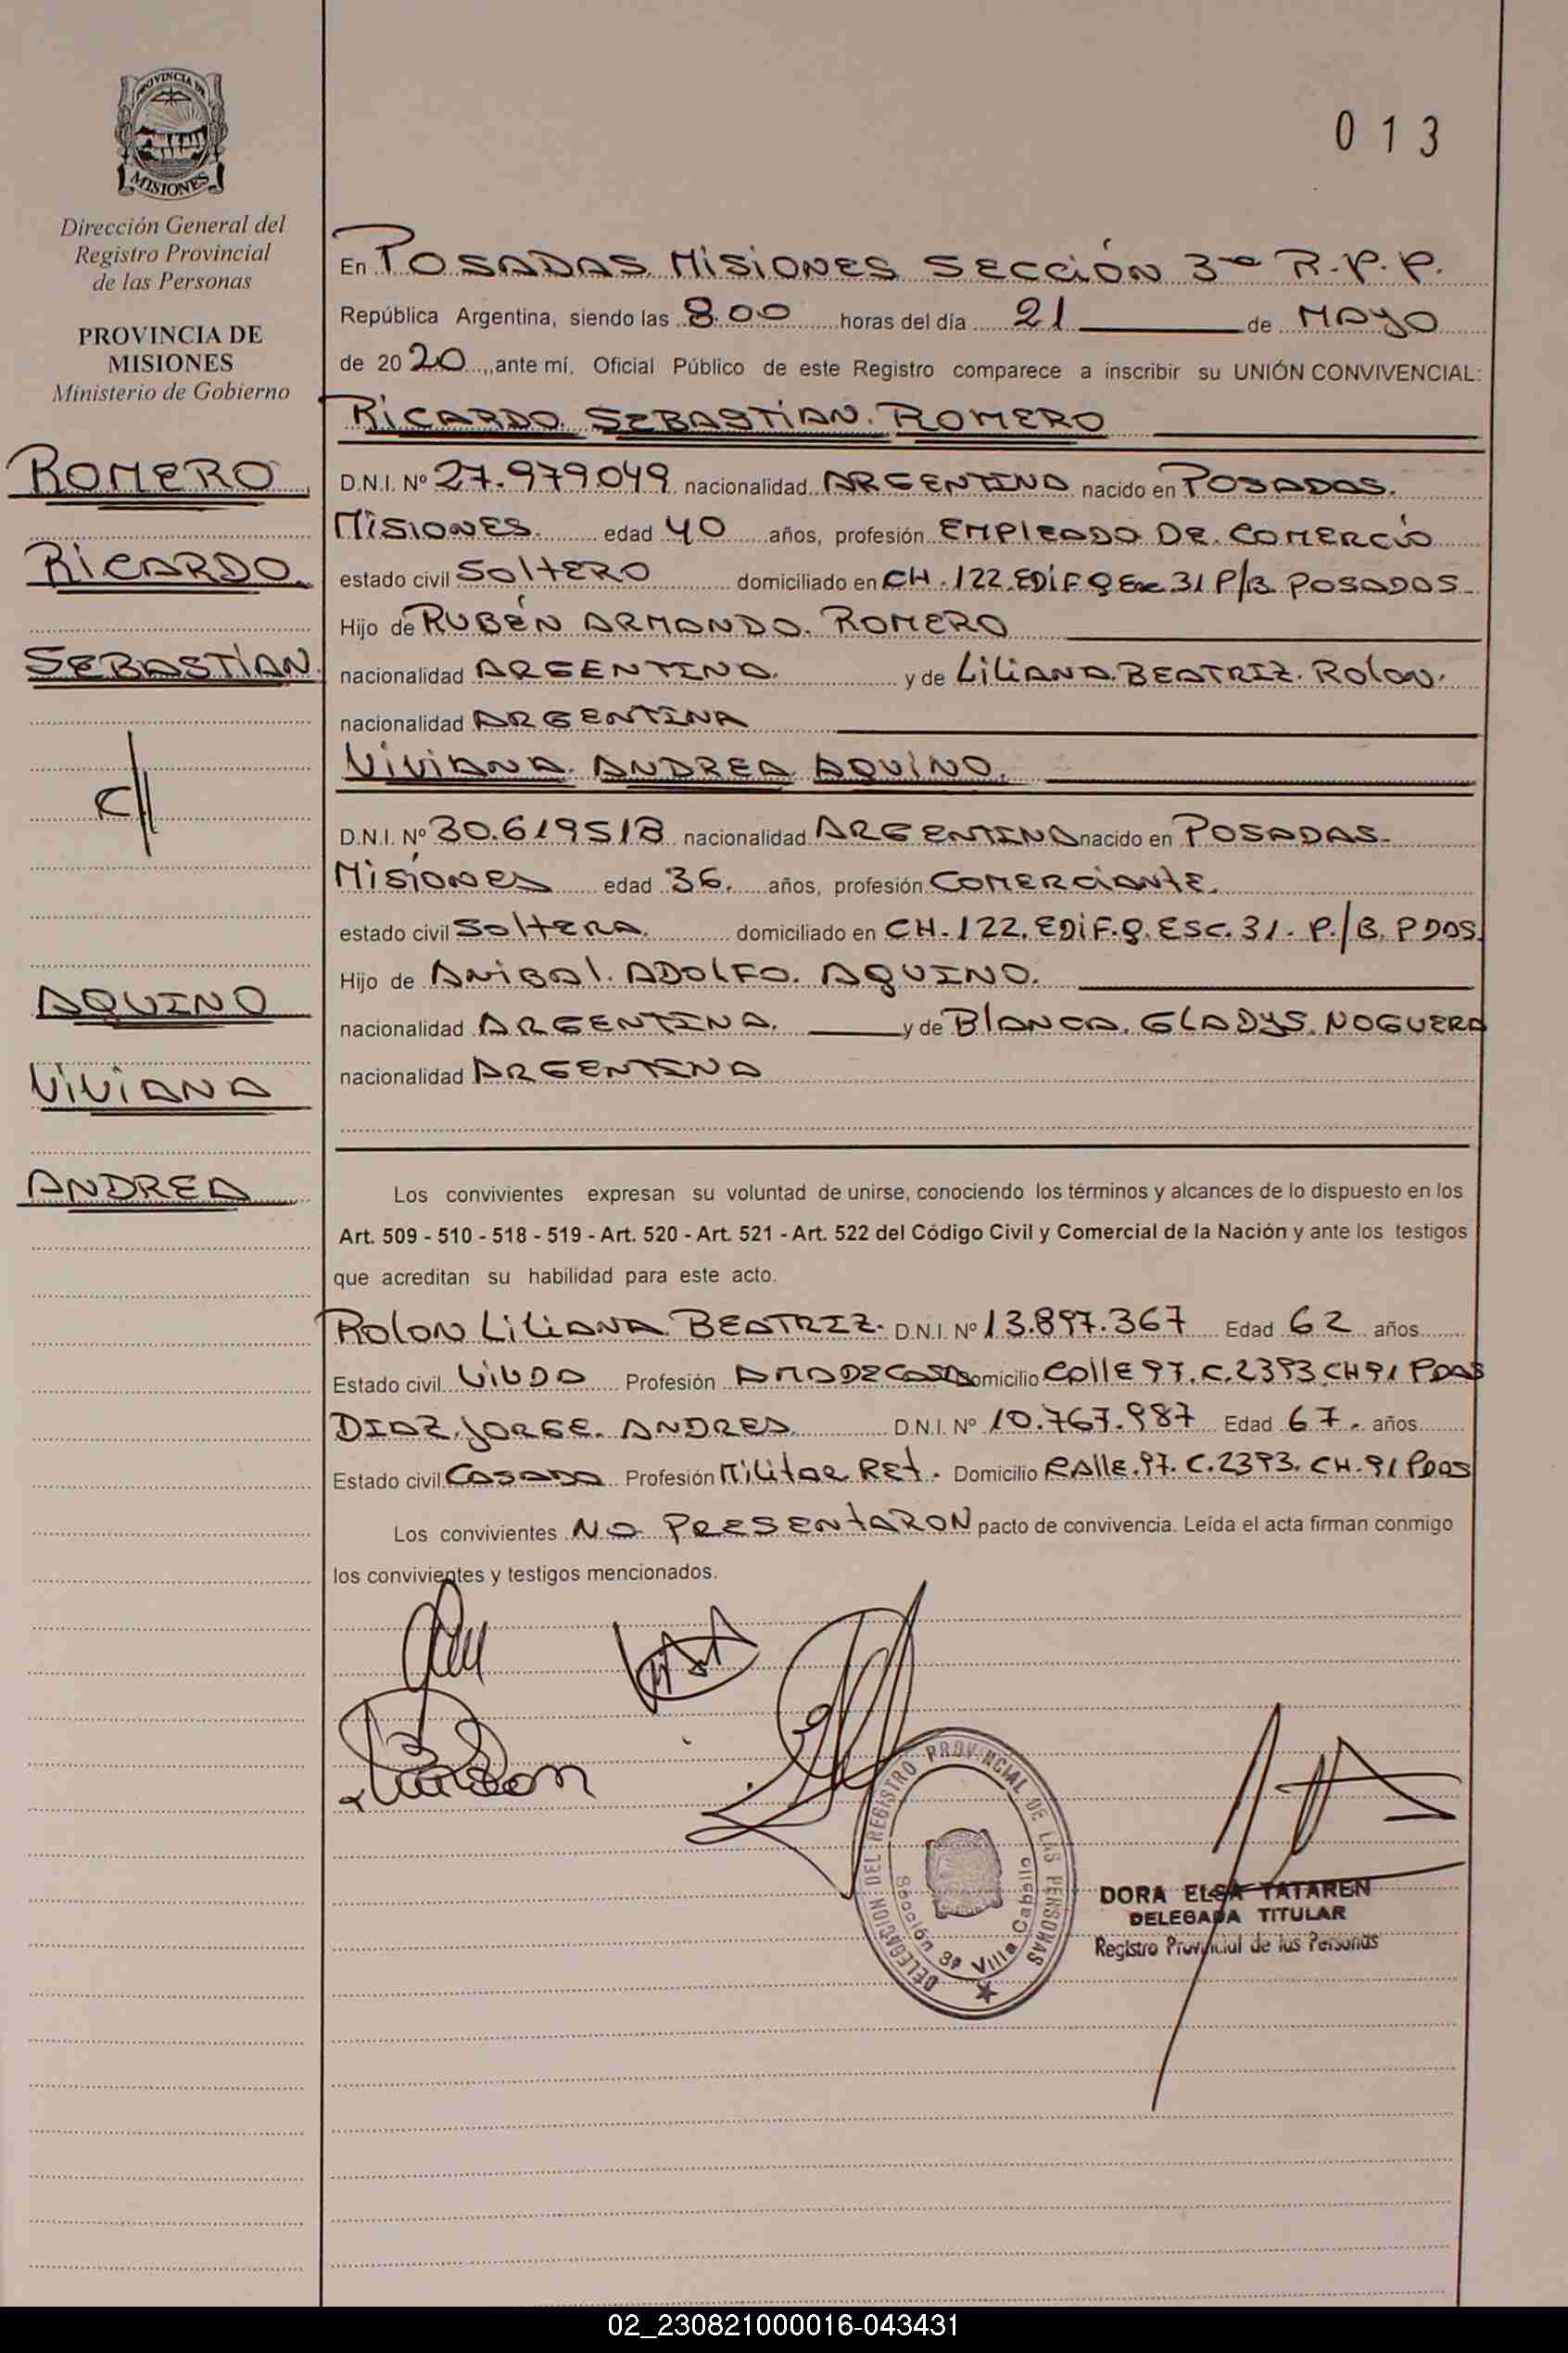 PROVINCIA DE
MISIONES
Dirección General del
Registro Provincial
de las Personas
PROVINCIA DE
MISIONES
Ministerio de Gobierno
ROMERO
RICARDO
SEBASTIAN.
c//
AQUINO
VIVIANA
ANDREA
013
En POSADAS MISIONES SECCIÓN 3ra R.P.P.
República Argentina, siendo las 8.00 horas del día 21 de MAYO
de 2020, ante mí, Oficial Público de este Registro comparece a inscribir su UNIÓN CONVIVENCIAL:
RICARDO SEBASTIAN ROMERO
D.N.I. Nº 27.979.049 nacionalidad ARGENTINA nacido en POSADAS.
MISIONES edad 40 años, profesión EMPLEADO DE COMERCIO
estado civil SOLTERO domiciliado en CH.122.EDIF Q Esc 31 P/B. POSADAS
Hijo de RUBÉN ARMANDO ROMERO
nacionalidad ARGENTINA. y de LILIANA BEATRIZ ROLON.
nacionalidad ARGENTINA
VIVIANA ANDREA AQUINO.
D.N.I. Nº 30.619518 nacionalidad ARGENTINA nacido en POSADAS-
MISIONES edad 36. años, profesión COMERCIANTE.
estado civil SOLTERA. domiciliado en CH-122. EDIF.Q. ESC.31. P./B. PDAS.
Hijo de ANIBAL ADOLFO AQUINO.
nacionalidad ARGENTINA. y de BLANCA GLADYS NOGUERA
nacionalidad ARGENTINA
Los convivientes expresan su voluntad de unirse, conociendo los términos y alcances de lo dispuesto en los
Art. 509 - 510 - 518 - 519 - Art. 520 - Art. 521 - Art. 522 del Código Civil y Comercial de la Nación y ante los testigos
que acreditan su habilidad para este acto.
ROLON LILIANA BEATRIZ. D.N.I. Nº 13.897.367 Edad 62 años
Estado civil VIUDA Profesión AMA DE CASA Domicilio CALLE 97.C.2393 CH 91 PDAS
DIAZ JORGE ANDRES D.N.I. Nº 10.767.987 Edad 67. años
Estado civil CASADA Profesión MILITAR RET. Domicilio CALLE.97. C.2393. CH.91 PDAS
Los convivientes NO PRESENTARON pacto de convivencia. Leída el acta firman conmigo
los convivientes y testigos mencionados.
DELEGACION DEL REGISTRO PROVINCIAL DE LAS PERSONAS
Sección 3ª Villa Cabello
DORA ELSA TATAREN
DELEGADA TITULAR
Registro Provincial de las Personas
02_230821000016-043431